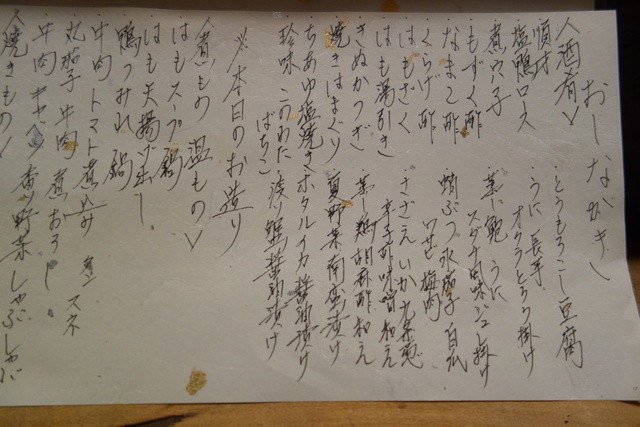 おしながき
〈酒肴〉
・とうもろこし豆腐
・順才
・うに 長芋
オクラとろろ掛け
・塩鴨ロース
・煮穴子
・蒸し鮑 うに
スダチ風味ジュレ掛け
・もずく酢
・なまこ酢
・蛸ぶつ 水茄子 白瓜
ワサビ 梅肉
・くらげ酢
・はもざく
・さざえ いか 九条葱
辛子酢味噌和え
・はも湯引き
・蒸し鶏 胡麻酢和え
・きぬかつぎ
・夏野菜南蛮漬け
・焼きはまぐり
・ホタルイカ醤油漬け
・ちあゆ塩焼き
・珍味 このわた
ばちこ
※本日のお造り
〈煮もの 温もの〉
・はもスープ鍋
・はも天揚げ出し
・鴨つみれ鍋
・牛肉 トマト煮込み
・丸茄子 牛肉 煮おろし
・牛肉 キャベツ 香り野菜しゃぶしゃぶ
〈焼きもの〉